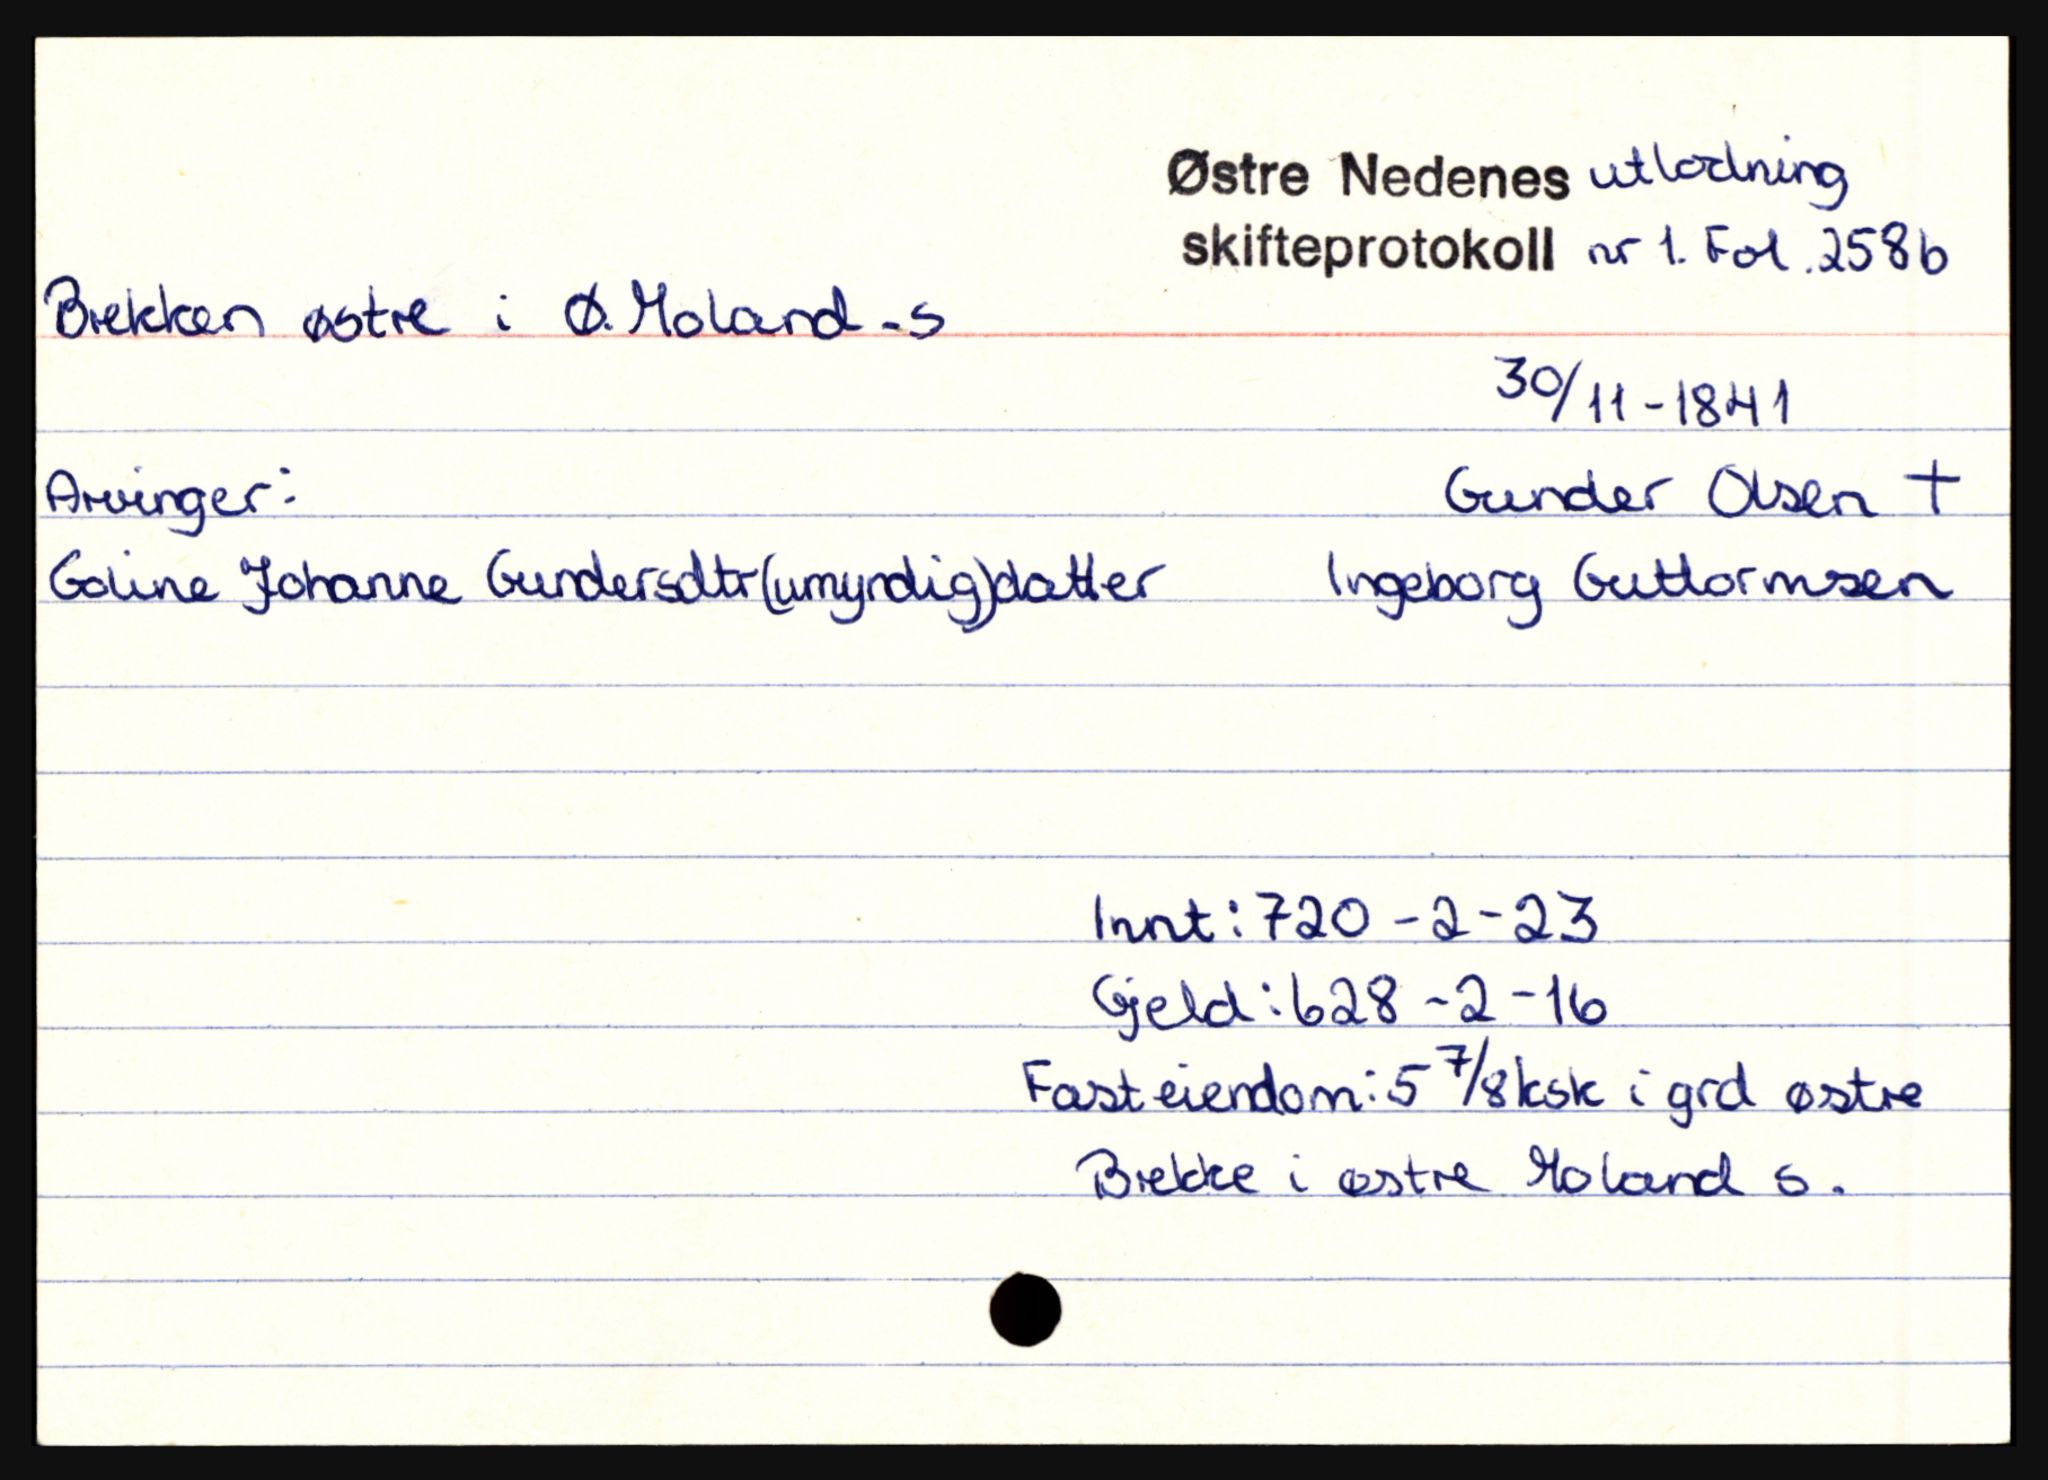 Østre Nedenes utlodning
skifteprotokoll nr 1. Fol. 258b
Brekken østre i Ø. Moland - s
30/11-1841
Arvinger: Gunder Olsen +
Goline Johanne Gundersdtr (umyndig) datter Ingeborg Guttormsen
Innt: 720 - 2 - 23
Gjeld: 628 - 2 - 16
Fast eiendom: 5 7/8 ksk i grd østre
Brekke i østre Moland s.